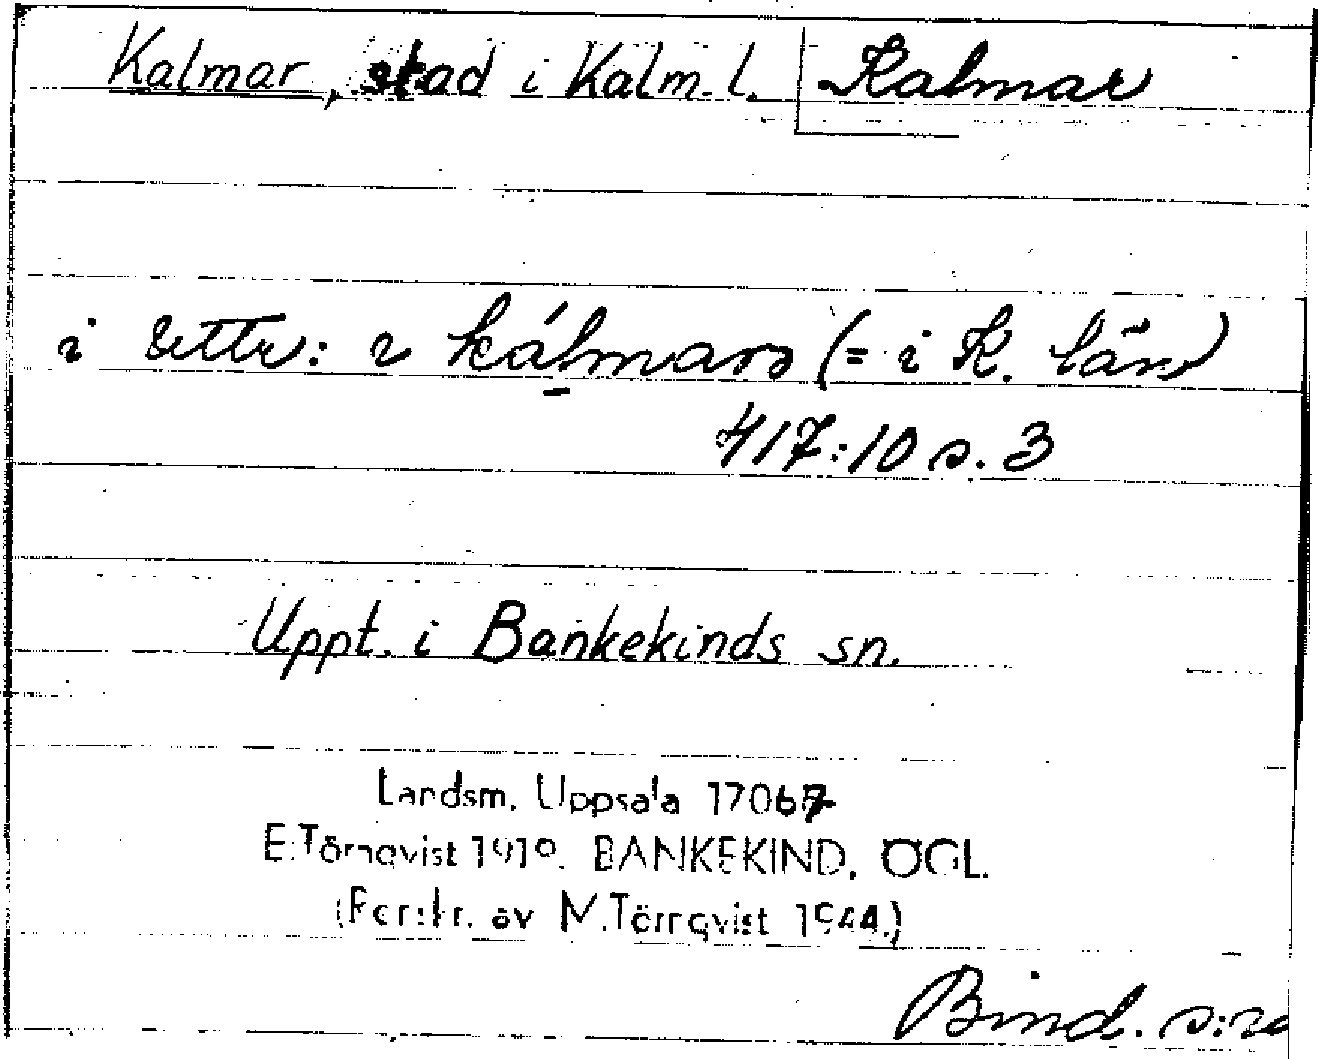 Kalmar, stad i Kalm. l. Kalmar
i uttr: i kálmars (= i K. län)
417:10 s. 3
Uppt. i Bankekinds sn.
Landsm. Uppsala 17067
E. Törnqvist 1919. BANKEKIND, ÖGL.
(Renskr. av M. Törnqvist 1944.)
Bind. s: